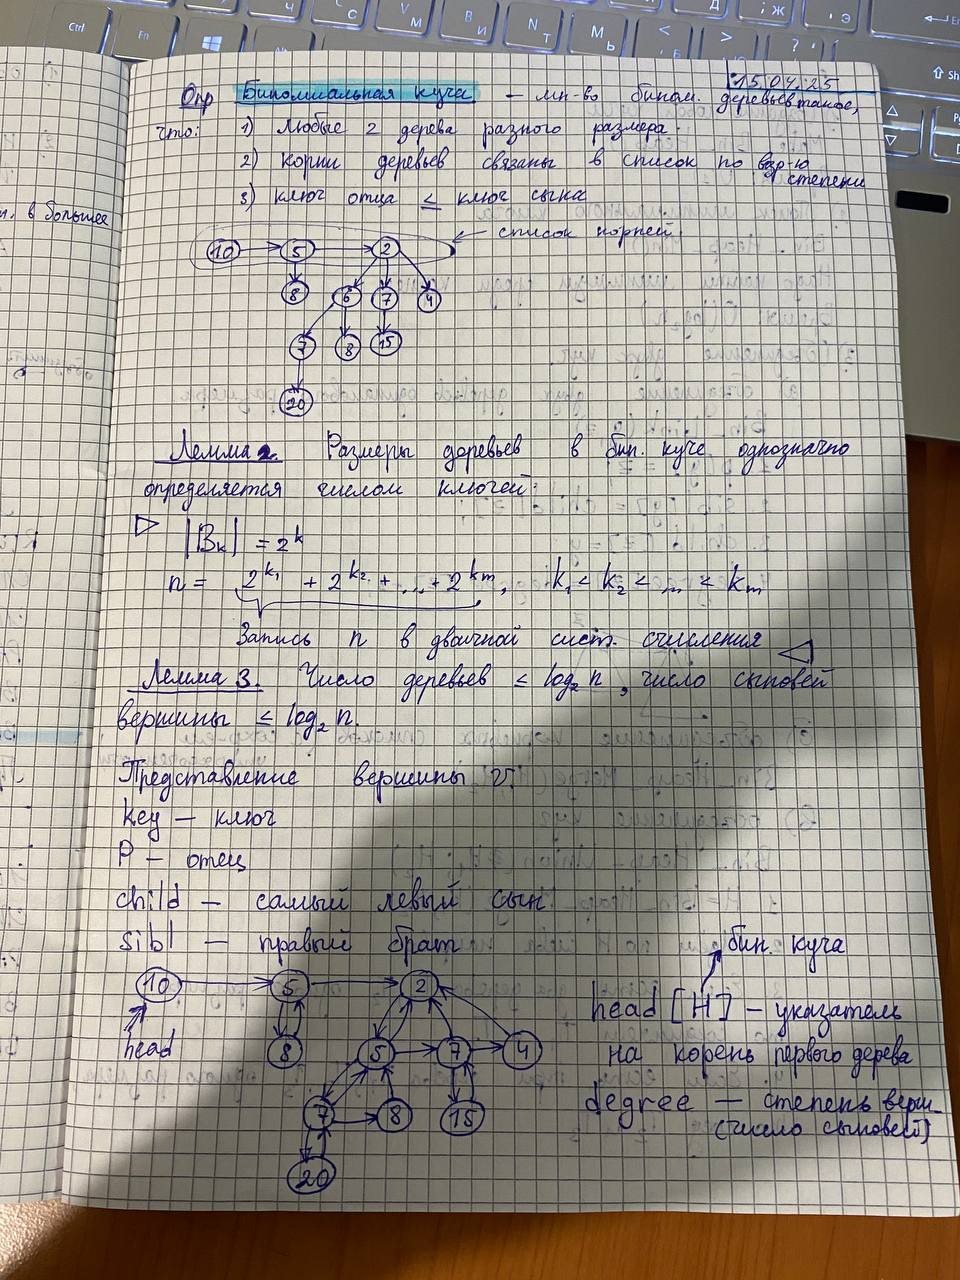 15.04.25
Опр Биномиальная куча — мн-во бином. деревьев такое,
что: 1) любые 2 дерева разного размера.
2) корни деревьев связаны в список по возр-ю
степени
3) ключ отца ≤ ключ сына
список корней
10 5 2
8 6 7 4
7 8 15
20
Лемма 2. Размеры деревьев в бин. куче однозначно
определяется числом ключей:
▷ |Bk| = 2^k
n = 2^k1 + 2^k2 + ... + 2^km, k1 < k2 < ... < km
Запись n в двоичной сист. счисления ◁
Лемма 3. Число деревьев ≤ log2 n, число сыновей
вершины ≤ log2 n.
Представление вершины v:
key — ключ
P — отец
child — самый левый сын
sibl — правый брат
бин. куча
10 5 2
head [H] — указатель
head 8 5 7 4
на корень первого дерева
degree — степень верш.
7 8 15
(число сыновей)
20